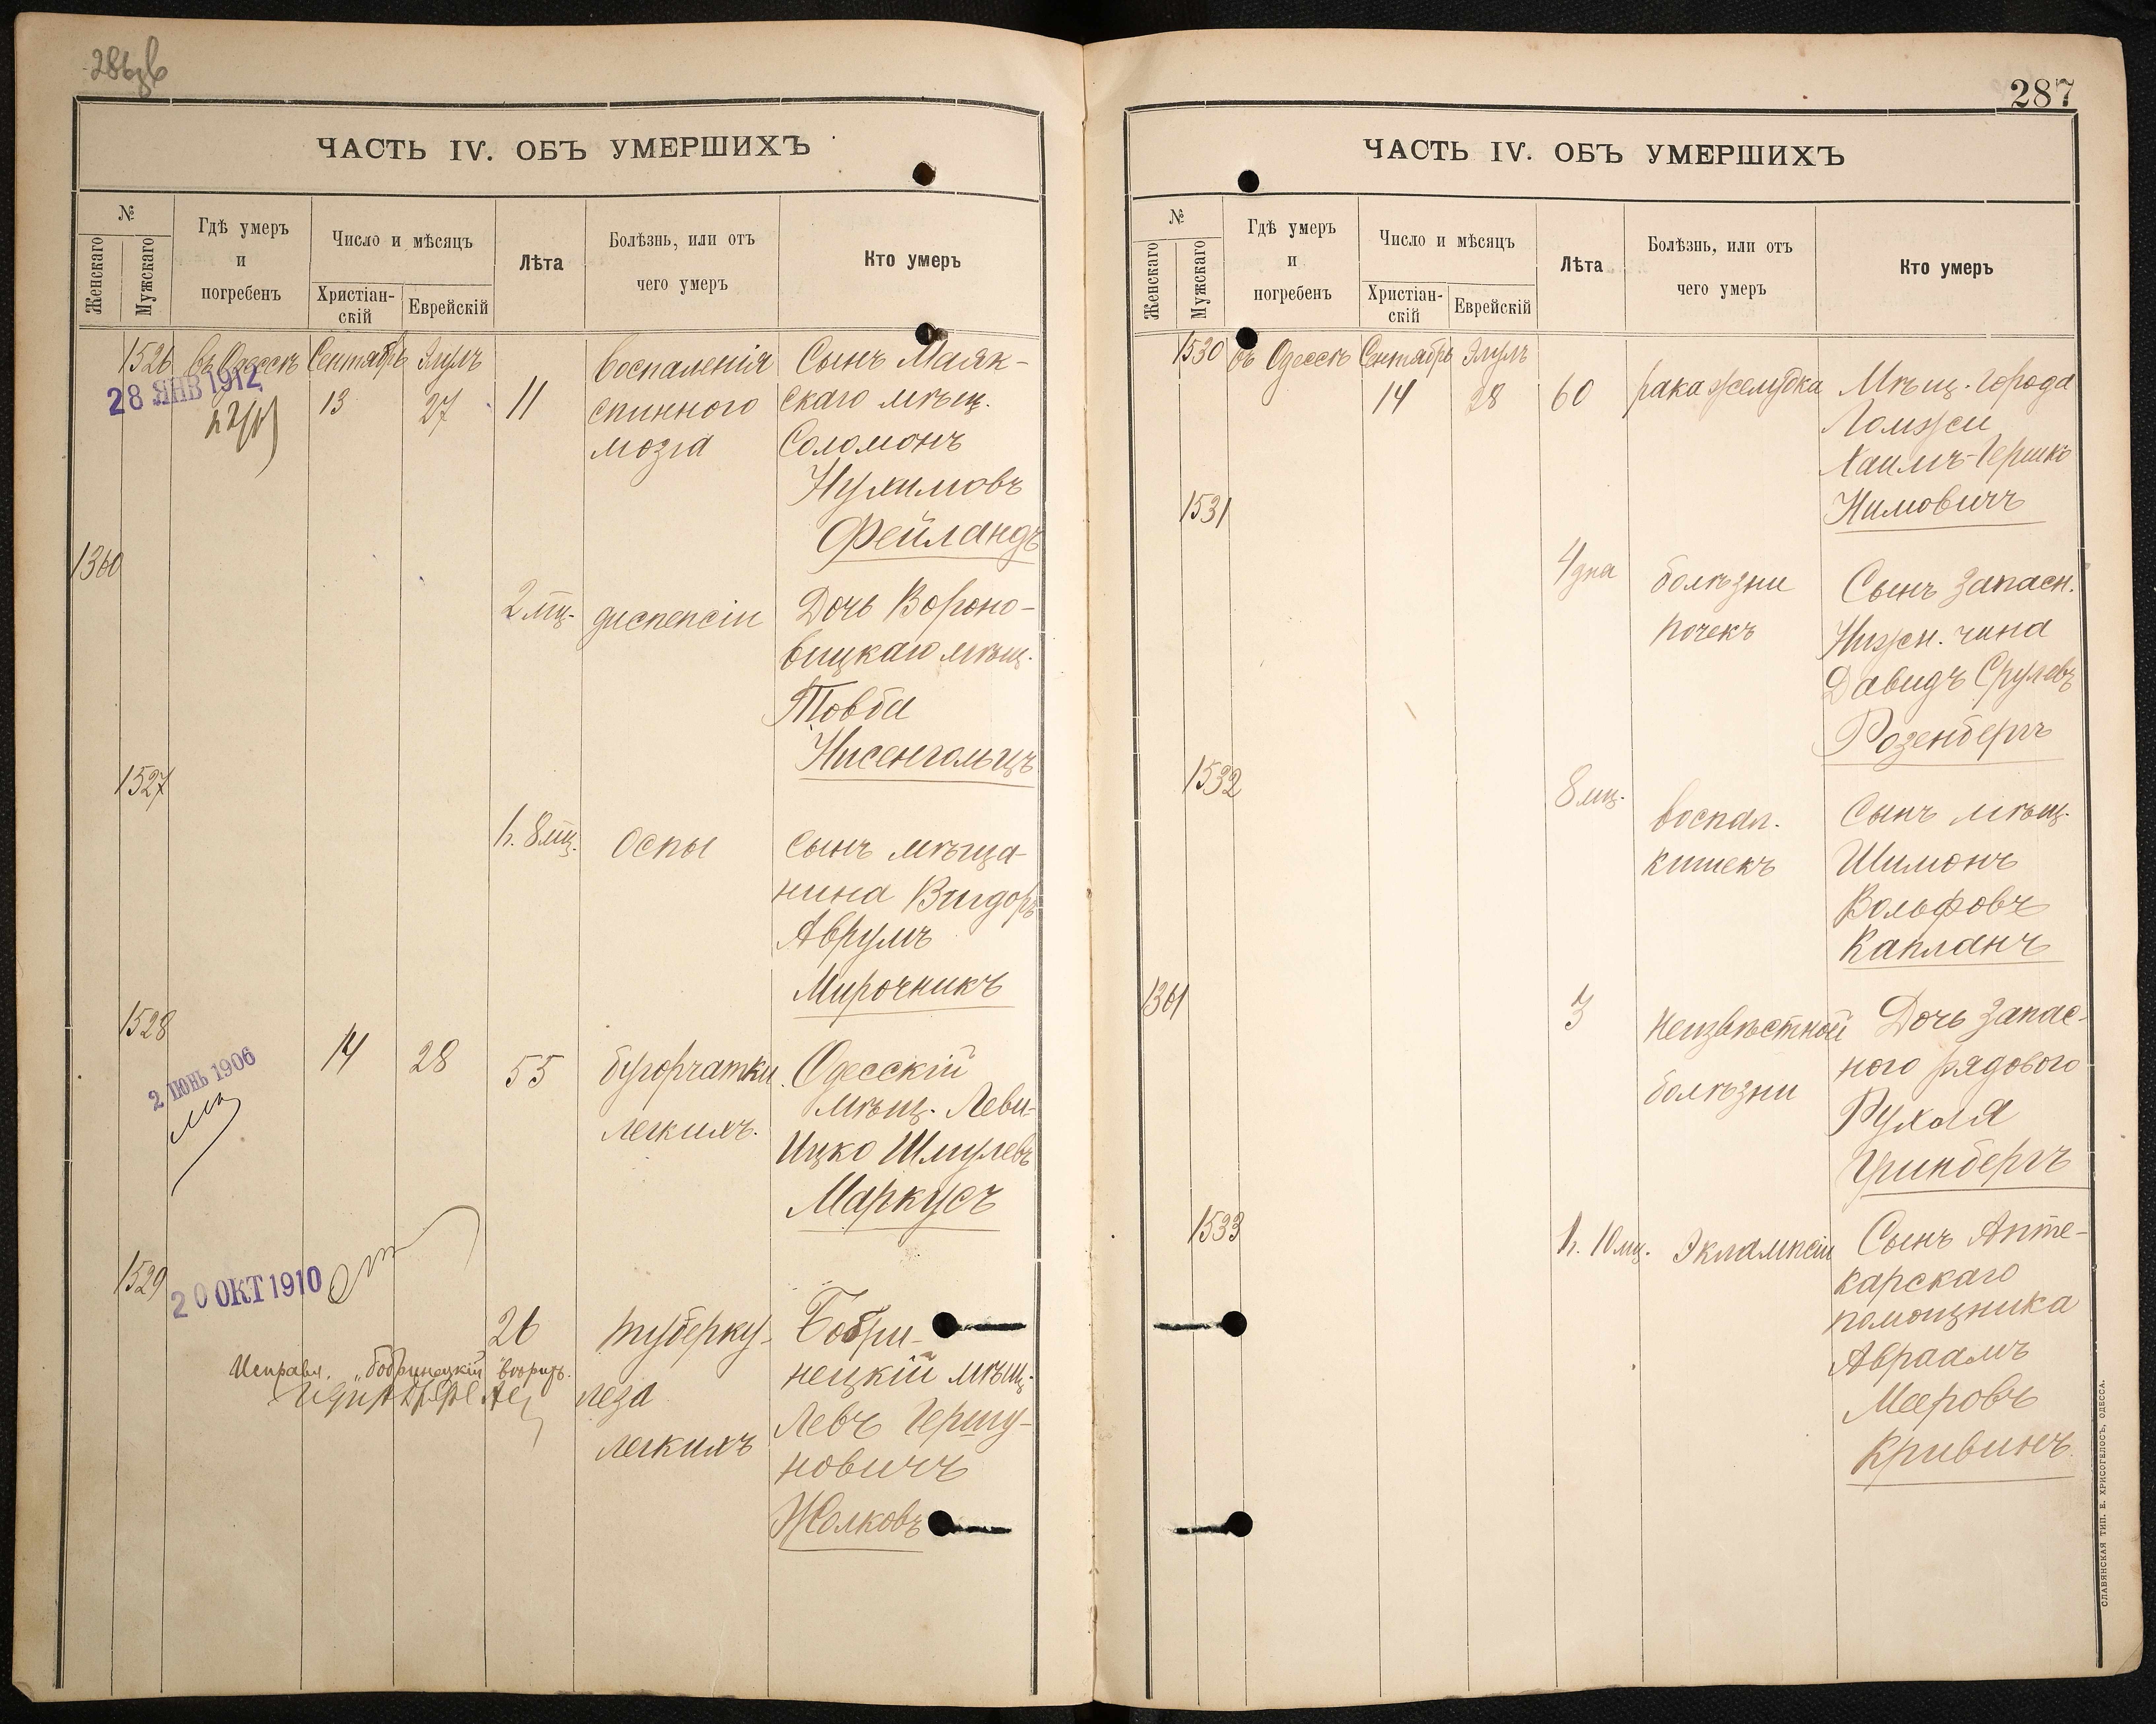 ЧАСТЬ IV. ОБЪ УМЕРШИХЪ
№
Женскаго
Мужскаго
Гдѣ умеръ
и
погребенъ
Число и мѣсяцъ
Христіан-
скій
Еврейскій
Лѣта
Болѣзнь, или отъ
чего умеръ
Кто умеръ
1526 въ Одессѣ Сентябрь Элулъ воспаленія Сынъ Маяк-
28 ЯНВ 1912
13 27 11 спинного скаго мѣщ.
мозга Соломонъ
Нухимовъ
Фейландъ
1360
2 мц. диспепсіи Дочь Вороно-
вицкаго мѣщ.
Товба
Нисенгольцъ
1527
1г. 8мц. Оспы сынъ мѣща-
нина Вигдоръ
Аврумъ
Мирочникъ
1528
2 ІЮНЬ 1906
14 28 55 бугорчатки Одесскій
легкихъ. мѣщ. Леви-
Ицко Шмулевъ
Маркусъ
1529
20 ОКТ 1910
26 туберку- Бобри-
Исправл. „Бобринецкій" вѣрить.
леза нецкій мѣщ.
легкихъ Левъ Гершу-
новичъ
Жолковъ
287
ЧАСТЬ IV. ОБЪ УМЕРШИХЪ
№
Женскаго
Мужскаго
Гдѣ умеръ
и
погребенъ
Число и мѣсяцъ
Христіан-
скій
Еврейскій
Лѣта
Болѣзнь, или отъ
чего умеръ
Кто умеръ
1530 въ Одессѣ Сентябрь Элулъ
14 28 60 рака желудка Мѣщ. города
Ломжи
Хаимъ-Гершко
Нимовичъ
1531
4 дня болѣзни Сынъ запасн.
почекъ Нижн. чина
Давидъ Срулевъ
Розенбергъ
1532
8 мц. воспал. Сынъ мѣщ.
кишекъ Шимонъ
Вольфовъ
Капланъ
1361
3 неизвѣстной Дочь запас-
болѣзни ного рядового
Рухля
Гринбергъ
1533
1г. 10мц. Эклампсіи Сынъ Апте-
карскаго
помощника
Авраамъ
Мееровъ
Кривинъ
СЛАВЯНСКАЯ ТИП. Е. ХРИСОГЕЛОСЪ, ОДЕССА.